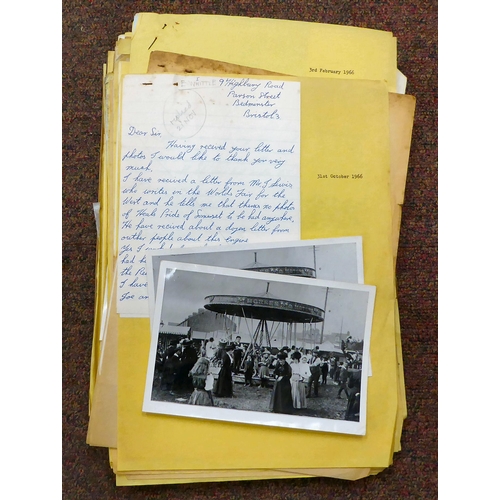 3rd February 1966
31st October 1966
9 Highbury Road
Parson Street
Bedminster
Bristol 3.
Dear Sir,
Having recived your letter and
photos I would like to thank you very
much.
I have recived a letter from Mr J. Lewis
who writes in the Worlds Fair for the
West and he tells me that theres no photo
of Heals Pride of Somerset to be had anywhere.
He have recived about a dozen letter from
outher people about this Engine
Yes I
had
the R
I have
Joe an